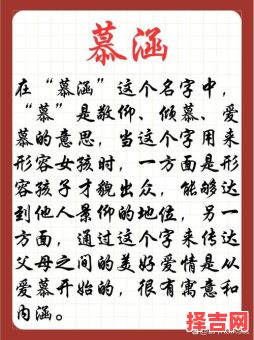 慕涵
在“慕涵”这个名字中，
“慕”是敬仰、倾慕、爱
慕的意思，当这个字用来
形容女孩时，一方面是形
容孩子才貌出众，能够达
到他人景仰的地位，另一
方面，通过这个字来传达
父母之间的美好爱情是从
爱慕开始的，很有寓意和
内涵。
择吉网